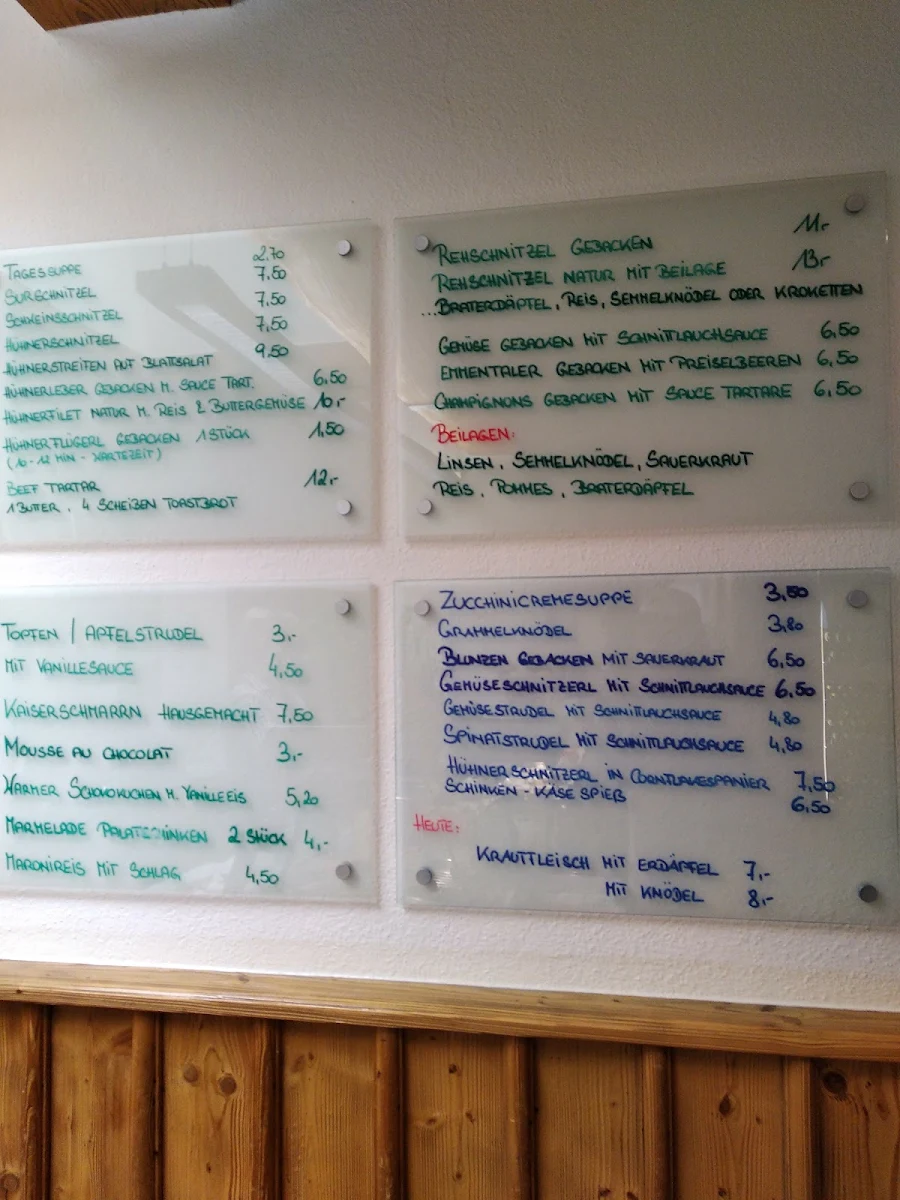 TAGESSUPPE 2,70
SURSCHNITZEL 7,50
SCHWEINSSCHNITZEL 7,50
HÜHNERSCHNITZEL 7,50
HÜHNERSTREIFEN AUF BLATTSALAT 9,50
HÜHNERLEBER GEBACKEN M. SAUCE TART. 6,50
HÜHNERFILET NATUR M. REIS & BUTTERGEMÜSE 10,-
HÜHNERFLÜGERL GEBACKEN 1 STÜCK 1,50
(10-12 MIN - WARTEZEIT)
BEEF TARTAR 12,-
1 BUTTER, 4 SCHEIBEN TOASTBROT
REHSCHNITZEL GEBACKEN 11,-
REHSCHNITZEL NATUR MIT BEILAGE 13,-
...BRATERDÄPFEL, REIS, SEMMELKNÖDEL ODER KROKETTEN
GEMÜSE GEBACKEN MIT SCHNITTLAUCHSAUCE 6,50
EMMENTALER GEBACKEN MIT PREISELBEEREN 6,50
CHAMPIGNONS GEBACKEN MIT SAUCE TARTARE 6,50
BEILAGEN:
LINSEN, SEMMELKNÖDEL, SAUERKRAUT
REIS, POMMES, BRATERDÄPFEL
TOPFEN / APFELSTRUDEL 3,-
MIT VANILLESAUCE 4,50
KAISERSCHMARRN HAUSGEMACHT 7,50
MOUSSE AU CHOCOLAT 3,-
WARMER SCHOKOKUCHEN M. VANILLEEIS 5,20
MARMELADE PALATSCHINKEN 2 STÜCK 4,-
MARONIREIS MIT SCHLAG 4,50
ZUCCHINICREMESUPPE 3,50
GRAMMELKNÖDEL 3,80
BLUNZEN GEBACKEN MIT SAUERKRAUT 6,50
GEMÜSESCHNITZERL MIT SCHNITTLAUCHSAUCE 6,50
GEMÜSESTRUDEL MIT SCHNITTLAUCHSAUCE 4,80
SPINATSTRUDEL MIT SCHNITTLAUCHSAUCE 4,80
HÜHNERSCHNITZERL IN CORNFLAKESPANIER 7,50
SCHINKEN-KÄSE SPIEß 6,50
HEUTE:
KRAUTFLEISCH MIT ERDÄPFEL 7,-
MIT KNÖDEL 8,-